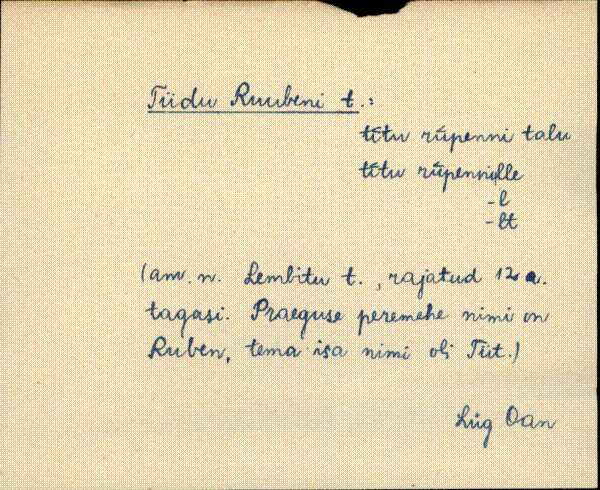 Tiidu Ruubeni t.:
tītu rūpenni talu
tītu rūpennille
-l
-lt
(am. n. Lembitu t., rajatud 12 a.
tagasi. Praeguse peremehe nimi on
Ruben, tema isa nimi oli Tiit.)
Lüg Oan